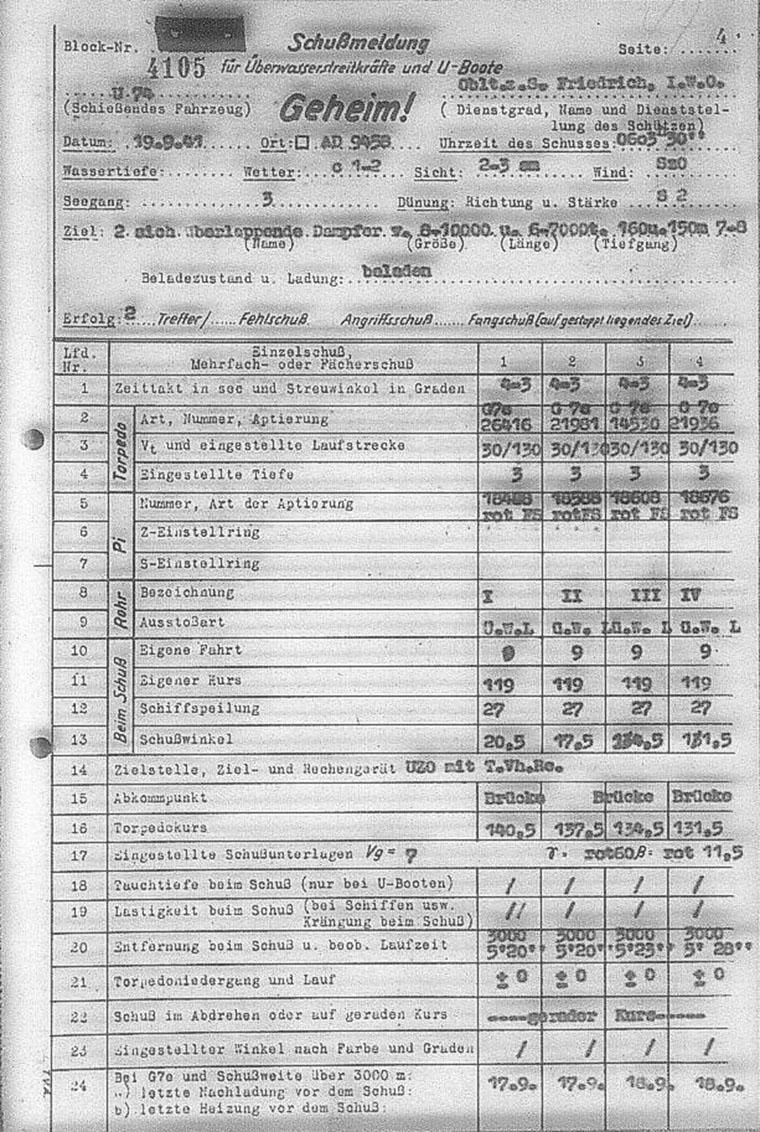 Block-Nr. Schußmeldung Seite: 4
4105 für Überwasserstreitkräfte und U-Boote
U 74 Geheim! Oblt.z.S. Friedrich, I.W.O.
(Schießendes Fahrzeug) ( Dienstgrad, Name und Dienststel-
lung des Schützen)
Datum: 19.9.41 Ort: □ AD 9458 Uhrzeit des Schusses: 0603
Wassertiefe: Wetter: c 1-2 Sicht: 2-3 Wind: SzO
Seegang: 3 Dünung: Richtung u. Stärke S 2
Ziel: 2 sich überlappende Dampfer v. 8-10000 u. 6-7000t. 160u.150m 7-8
(Name) (Größe) (Länge) (Tiefgang)
Beladezustand u. Ladung: beladen
Erfolg: 2 Treffer/ Fehlschuß. Angriffsschuß Fangschuß (auf gestoppt liegendes Ziel)
Lfd. Nr. Einzelschuß, Mehrfach- oder Fächerschuß 1 2 3 4
1 Zeittakt in sec und Streuwinkel in Graden 4-3 4-3 4-3 4-3
Torpedo
2 Art, Nummer, Aptierung G7e 26416 G 7e 21981 G 7e 14530 G 7e 21936
3 Vt und eingestellte Laufstrecke 30/130 30/130 30/130 30/130
4 Eingestellte Tiefe 3 3 3 3
Pi
5 Nummer, Art der Aptierung rot FS 18588 rot FS 18608 rot FS 18676 rot FS
6 Z-Einstellring
7 S-Einstellring
Rohr
8 Bezeichnung I II III IV
9 Ausstoßart Ü.W.L Ü.W. L Ü.W. L Ü.W. L
Beim Schuß
10 Eigene Fahrt 9 9 9 9
11 Eigener Kurs 119 119 119 119
12 Schiffspeilung 27 27 27 27
13 Schußwinkel 20,5 17,5 ,5 ,5
14 Zielstelle, Ziel- und Rechengerät UZO mit T.Vh.Re.
15 Abkommpunkt Brücke Brücke Brücke
16 Torpedokurs 140,5 137,5 134,5 131,5
17 Eingestellte Schußunterlagen Vg = 7 γ. rot60 β= rot 11,5
18 Tauchtiefe beim Schuß (nur bei U-Booten) / / / /
19 Lastigkeit beim Schuß (bei Schiffen usw. Krängung beim Schuß) / / / /
20 Entfernung beim Schuß u. beob. Laufzeit 3000 5'20'' 3000 5'20'' 3000 5'23'' 3000 5' 28''
21 Torpedoniedergang und Lauf ± 0 ± 0 ± 0 ± 0
22 Schuß im Abdrehen oder auf geraden Kurs ----gerader Kurs-----
23 Eingestellter Winkel nach Farbe und Graden / / / /
24 Bei G7e und Schußweite über 3000 m:
a) letzte Nachladung vor dem Schuß: 17.9. 17.9. 18.9. 18.9.
b) letzte Heizung vor dem Schuß: